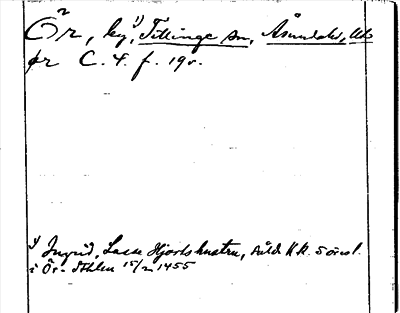 Ör, by, Tillinge sn, Åsunda hd, Upl.
ør C. 4. f. 19v.
1) Ingrid, Lasse Hjorts hustru, sålde KK. 5 öresl.
i Ör - Sthlm 15/2 1455